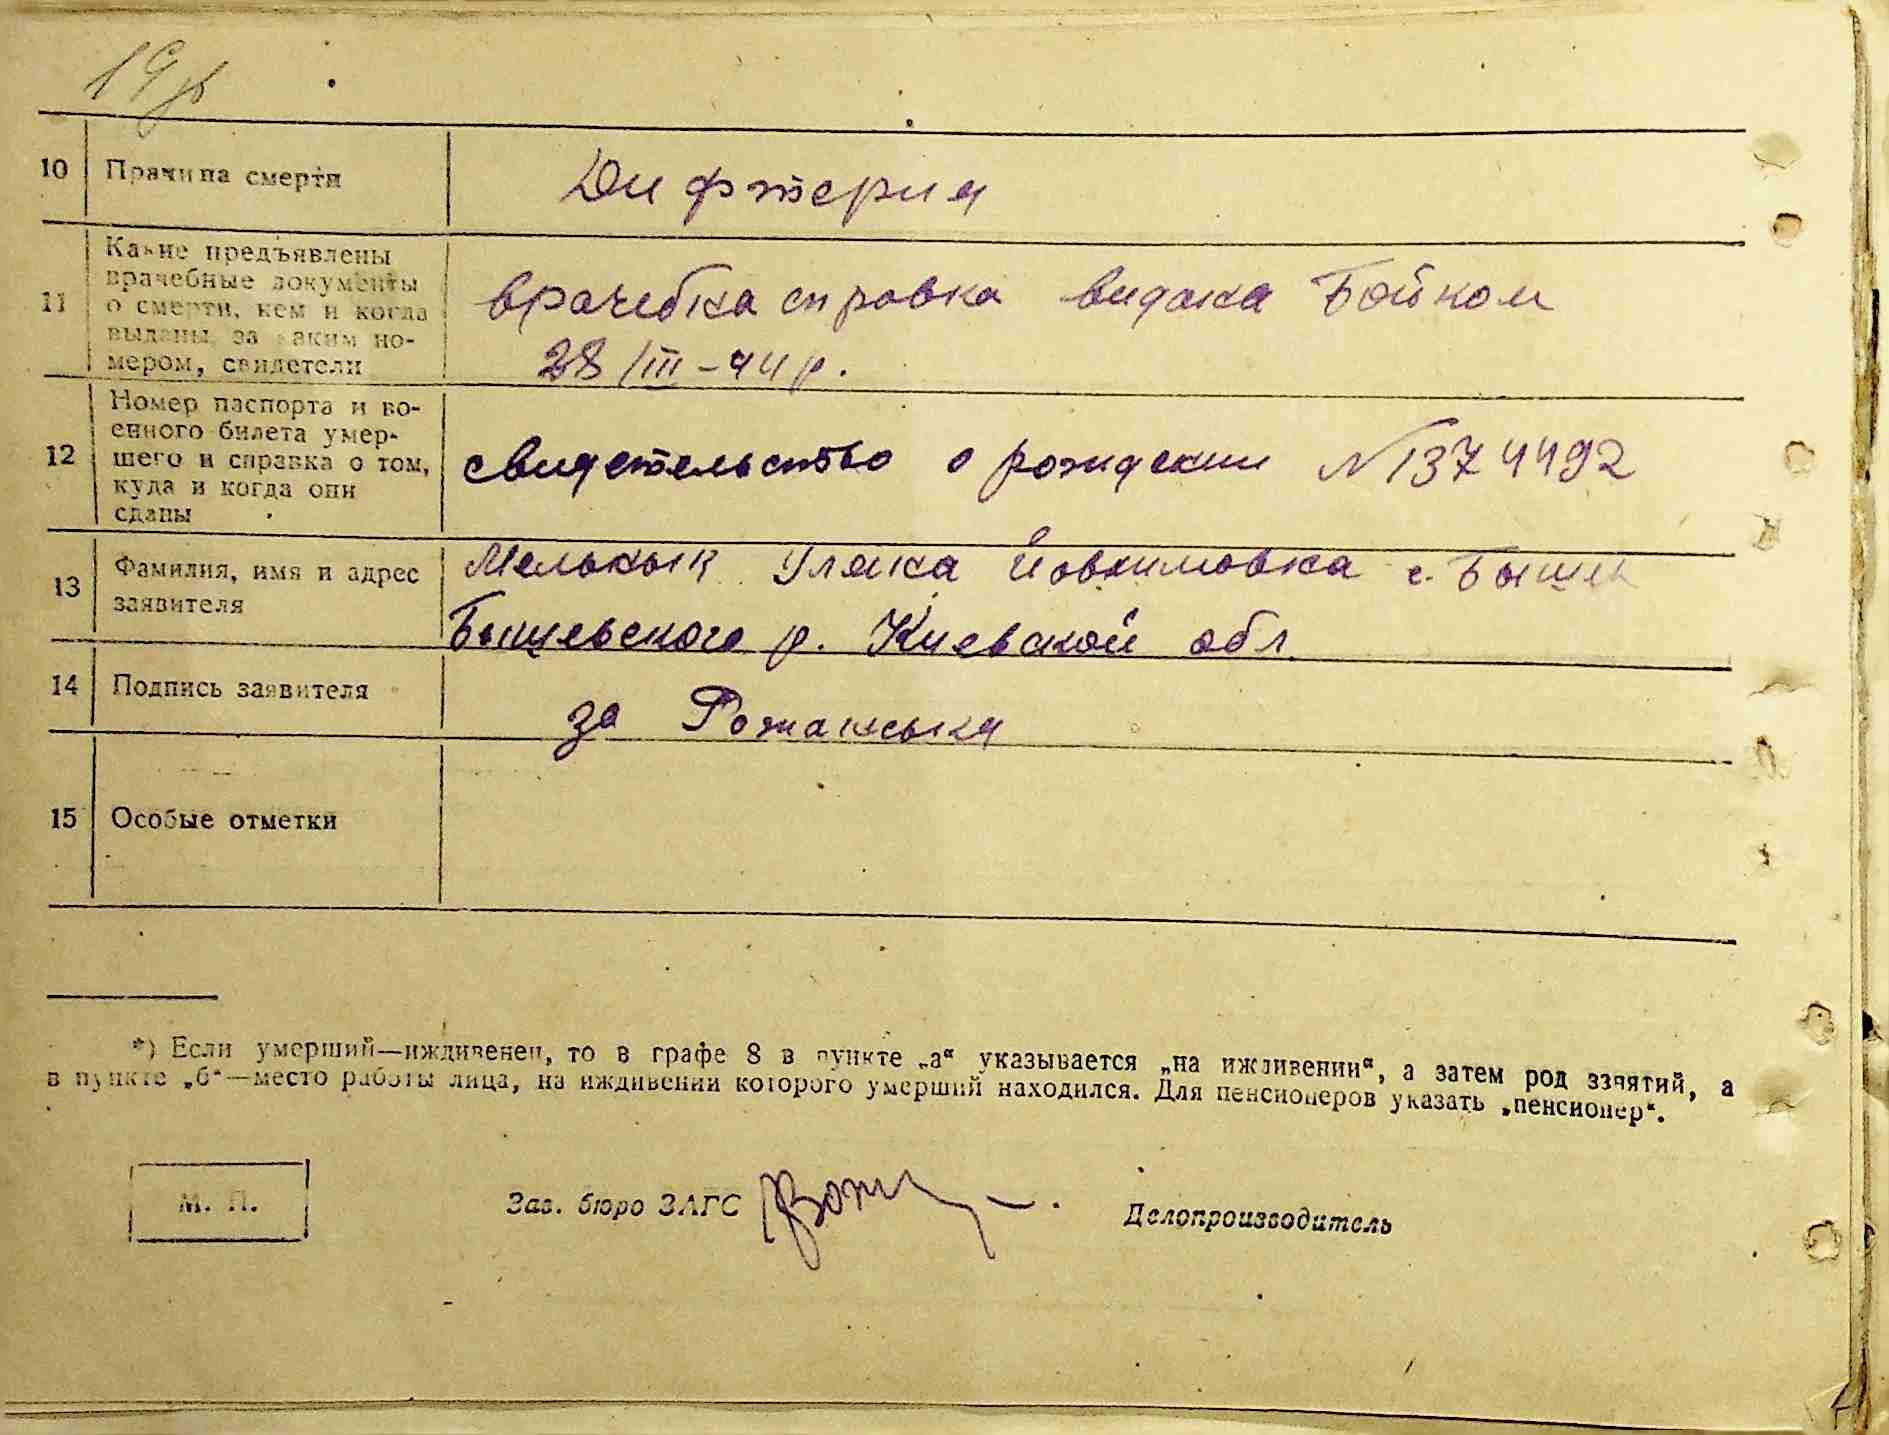 19
10 Причина смерти Дифтерия
11 Какие предъявлены
врачебные документы
о смерти, кем и когда
выданы, за каким но-
мером, свидетели
врачебна справка видана Бойком
28/III-44 р.
12 Номер паспорта и во-
енного билета умер-
шего и справка о том,
куда и когда они
сданы
свидетельство о рождении N 1374492
13 Фамилия, имя и адрес
заявителя
Мельнык Уляна Йовхимовна с. Бышев
Бышевского р. Киевской обл.
14 Подпись заявителя за Рожанська
15 Особые отметки
*) Если умерший—иждивенец, то в графе 8 в пункте „а“ указывается „на иждивении“, а затем род занятий, а
в пункте „б“—место работы лица, на иждивении которого умерший находился. Для пенсионеров указать „пенсионер“.
М. П. Зав. бюро ЗАГС Делопроизводитель